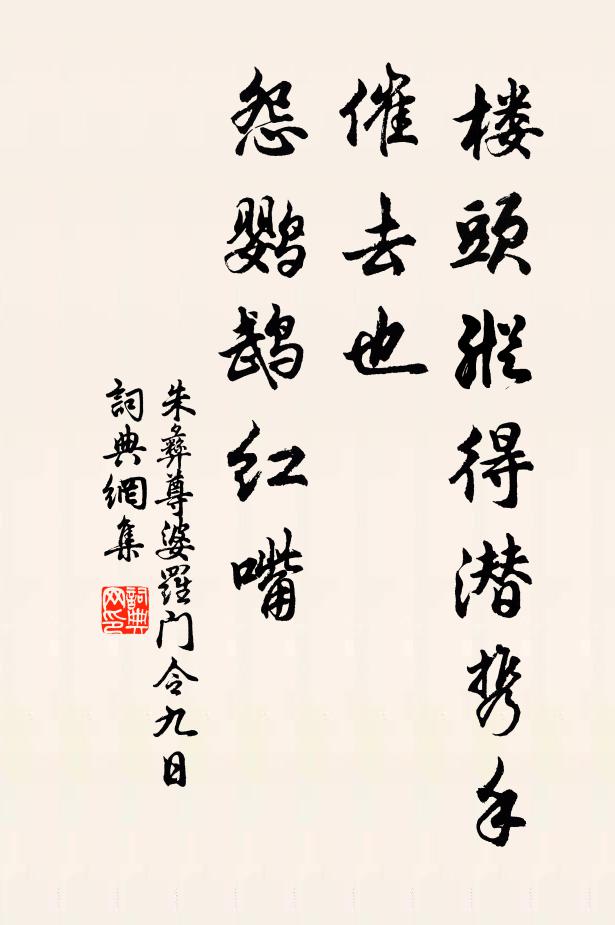 楼頭縱得潜携手
催去也
怨鹦鹉红嘴
朱彝尊婆羅门令九日
詞典網集
詞典网印